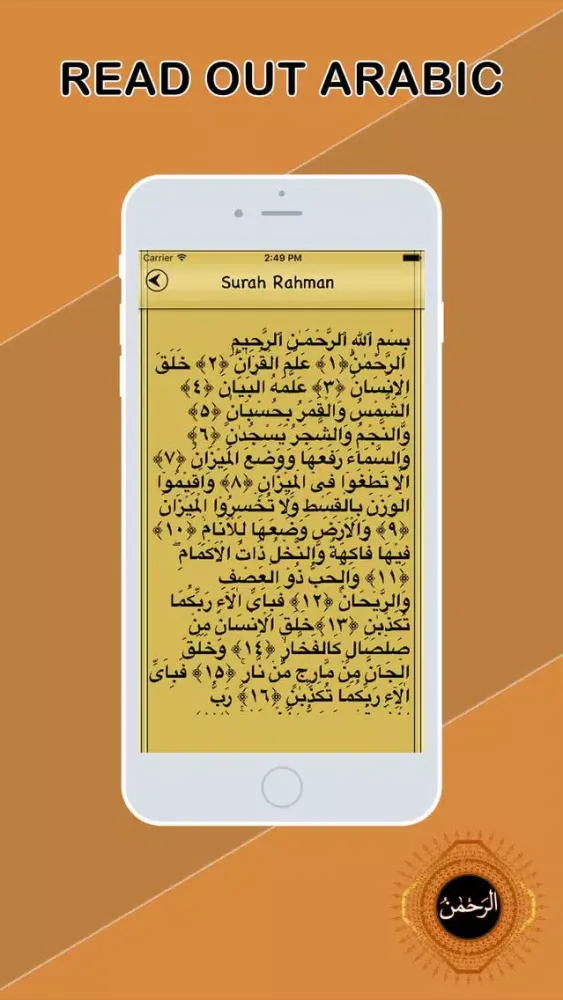 READ OUT ARABIC
Carrier
2:49 PM
Surah Rahman
بِسْمِ ٱللهِ ٱلرَّحْمَـٰنِ ٱلرَّحِيمِ
اَلرَّحْمٰنُۙ ﴿۱﴾ عَلَّمَ الۡقُرۡاٰنَؕ ﴿۲﴾ خَلَقَ
الۡاِنۡسَانَۙ ﴿۳﴾ عَلَّمَهُ الۡبَيَانَ ﴿۴﴾
اَلشَّمۡسُ وَالۡقَمَرُ بِحُسۡبَانٍ ﴿۵﴾
وَّالنَّجۡمُ وَالشَّجَرُ يَسۡجُدٰنِ ﴿۶﴾
وَالسَّمَآءَ رَفَعَهَا وَوَضَعَ الۡمِيۡزَانَۙ ﴿۷﴾
اَلَّا تَطۡغَوۡا فِى الۡمِيۡزَانِ ﴿۸﴾ وَاَقِيۡمُوا
الۡوَزۡنَ بِالۡقِسۡطِ وَلَا تُخۡسِرُوا الۡمِيۡزَانَ
﴿۹﴾ وَالۡاَرۡضَ وَضَعَهَا لِلۡاَنَامِۙ ﴿۱۰﴾
فِيۡهَا فَاكِهَةٌ وَّالنَّخۡلُ ذَاتُ الۡاَكۡمَامِۖ
﴿۱۱﴾ وَالۡحَبُّ ذُو الۡعَصۡفِ
وَالرَّيۡحَانُۚ ﴿۱۲﴾ فَبِاَىِّ اٰلَاۤءِ رَبِّكُمَا
تُكَذِّبٰنِ ﴿۱۳﴾ خَلَقَ الۡاِنۡسَانَ مِنۡ
صَلۡصَالٍ كَالۡفَخَّارِۙ ﴿۱۴﴾ وَخَلَقَ
الۡجَآنَّ مِنۡ مَّارِجٍ مِّنۡ نَّارٍۚ ﴿۱۵﴾ فَبِاَىِّ
اٰلَاۤءِ رَبِّكُمَا تُكَذِّبٰنِ ﴿۱۶﴾ رَبُّ
الرَّحْمٰنُ